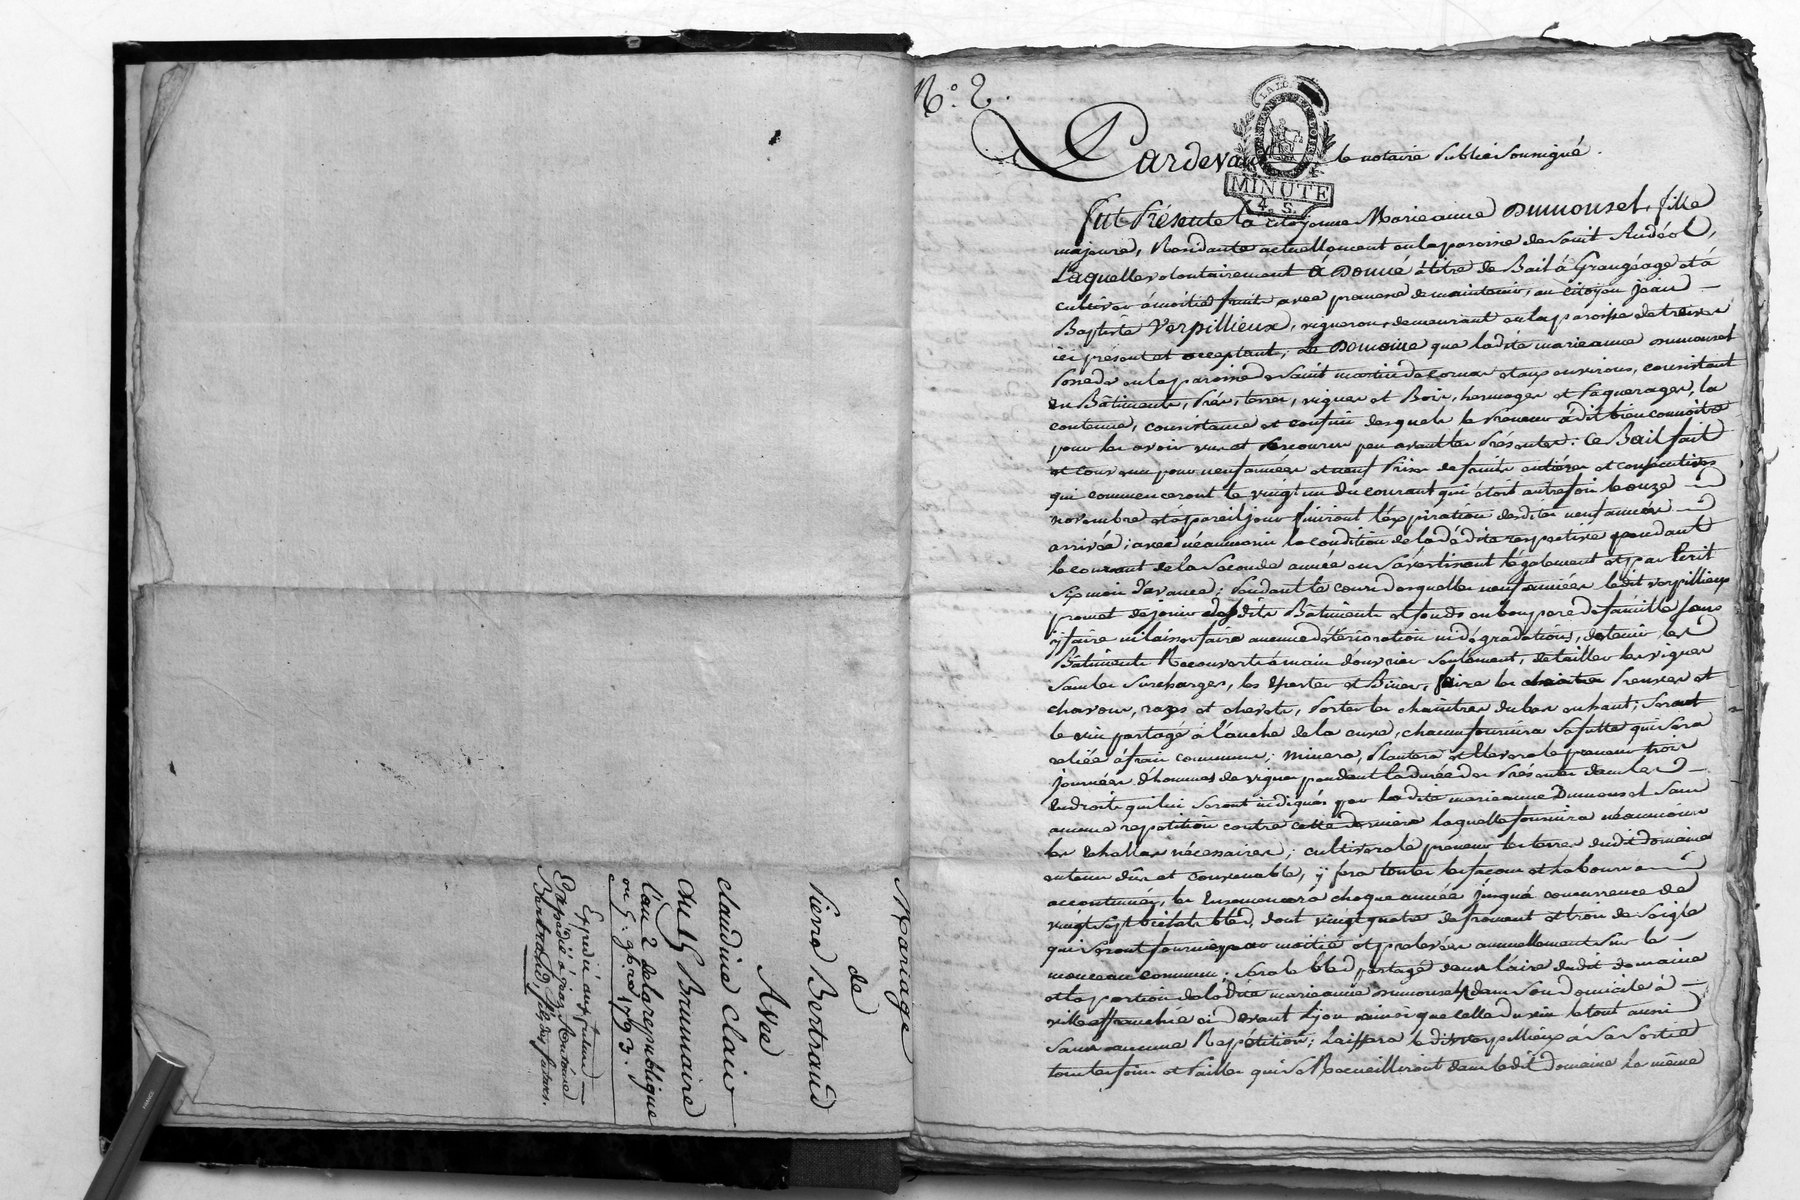 Mariage
de
Pierre Bertrand
Avec
claudine Clair
du 15 Brumaire
l'an 2 de la republique
ou 5. 9bre 1793.
Expédié aux futurs
Expédié à sieur Antoine
Bertrand, fils des futurs.
N.° 2.
LA LOI
MINUTE
4. S.
Pardevant le notaire Public Soussigné.
fut Présente la citoyenne Marieanne Dumonsel, fille
majeure, Residante actuellement en la paroisse de Saint Andéol,
Laquelle volontairement à Donné à titre de Bail à Grangéage et à
cultiver à moitié fruits avec promesse de maintenir, au citoyen Jean
Baptiste Verpillieux, vigneron, demeurant en la paroisse de
ici présent et acceptant, Le Domaine que ladite marieanne Dumonsel
Possede en la paroisse de Saint martin de Cornas et aux environs, consistant
en Bâtiments, Prés, terres, vignes et Bois, hermages et Paquerages, la
contenue, consistance et confins desquels le Preneur à dit bien connoitre
pour les avoir vus et parcourus peu avant les Présentes: Ce Bail fait
et convenu pour neuf années et neuf Prises de fruits entières et consécutives
qui commenceront le vingt un du courant qui étoit autrefois le onze
novembre et à pareil jour finiront l'expiration desdites neuf années
arrivée; avec néanmoins la condition de la dédite respective pendant
le courant de la Seconde année en s'avertissant légalement et par Ecrit
Six mois d'avance; Pendant le cours desquelles neuf années ledit Verpillieux
promet de jouir desdits Bâtiments et fonds en bon pere de famille sans
y faire ni laisser faire aucune détérioration ni dégradations, de tenir les
Bâtiments Recouverts à main d'ouvrier Seulement, de tailler les vignes
Sans les Surcharger, les et Biner, faire les Preuves et
chavons, razes et chevots, Porter les chaintres du bas en haut; Serat
le vin partagé à l'anche de la cuve, chacun fournira sa futte qui Sera
reliée à frais communs; minera, Plantera et Elevera le preneur trois
journées d'hommes de vignes pendant la durée des Présentes dans les
Endroits qui lui Seront indiqués par ladite marieanne Dumonsel Sans
aucune repetition contre cette derniere laquelle fournira néanmoins
les Echallas nécessaires; cultivera le preneur les terres dudit domaine
en tems dûs et convenable, y fera toutes les façons et labours
accoutumés, les Ensemencera chaque année jusqu'à concurrence de
vingt sept bichets bled, dont vingt quatre de froment et trois de Seigle
qui Seront fournis par moitié et prelevés annuellement Sur le
monceau commun; Sera le bled partagé dans l'aire dudit domaine
et la portion de ladite marieanne Dumonsel dans Son domicile à
villeaffranchie ci devant Lyon ainsi que celle du vin le tout aussi
Sans aucune Répétition; Laissera ledit verpillieux à Sa Sortie
tous les foins et Pailles qui se Recueilliront dans ledit Domaine la même